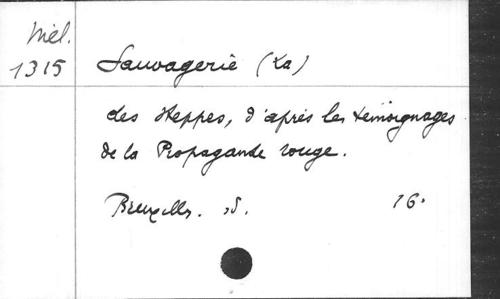 Mél.
1315
Sauvagerie (La)
des steppes, d'après les témoignages
de la Propagande rouge.
Bruxelles. s.d. 16°